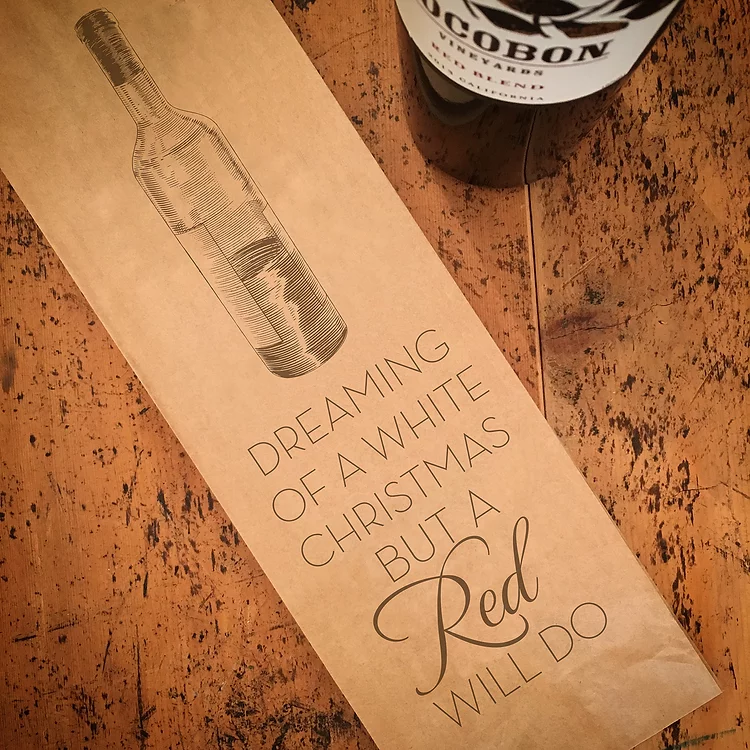 OCOBON
VINEYARDS
RED BLEND
2013 CALIFORNIA
DREAMING
OF A WHITE
CHRISTMAS
BUT A
Red
WILL DO